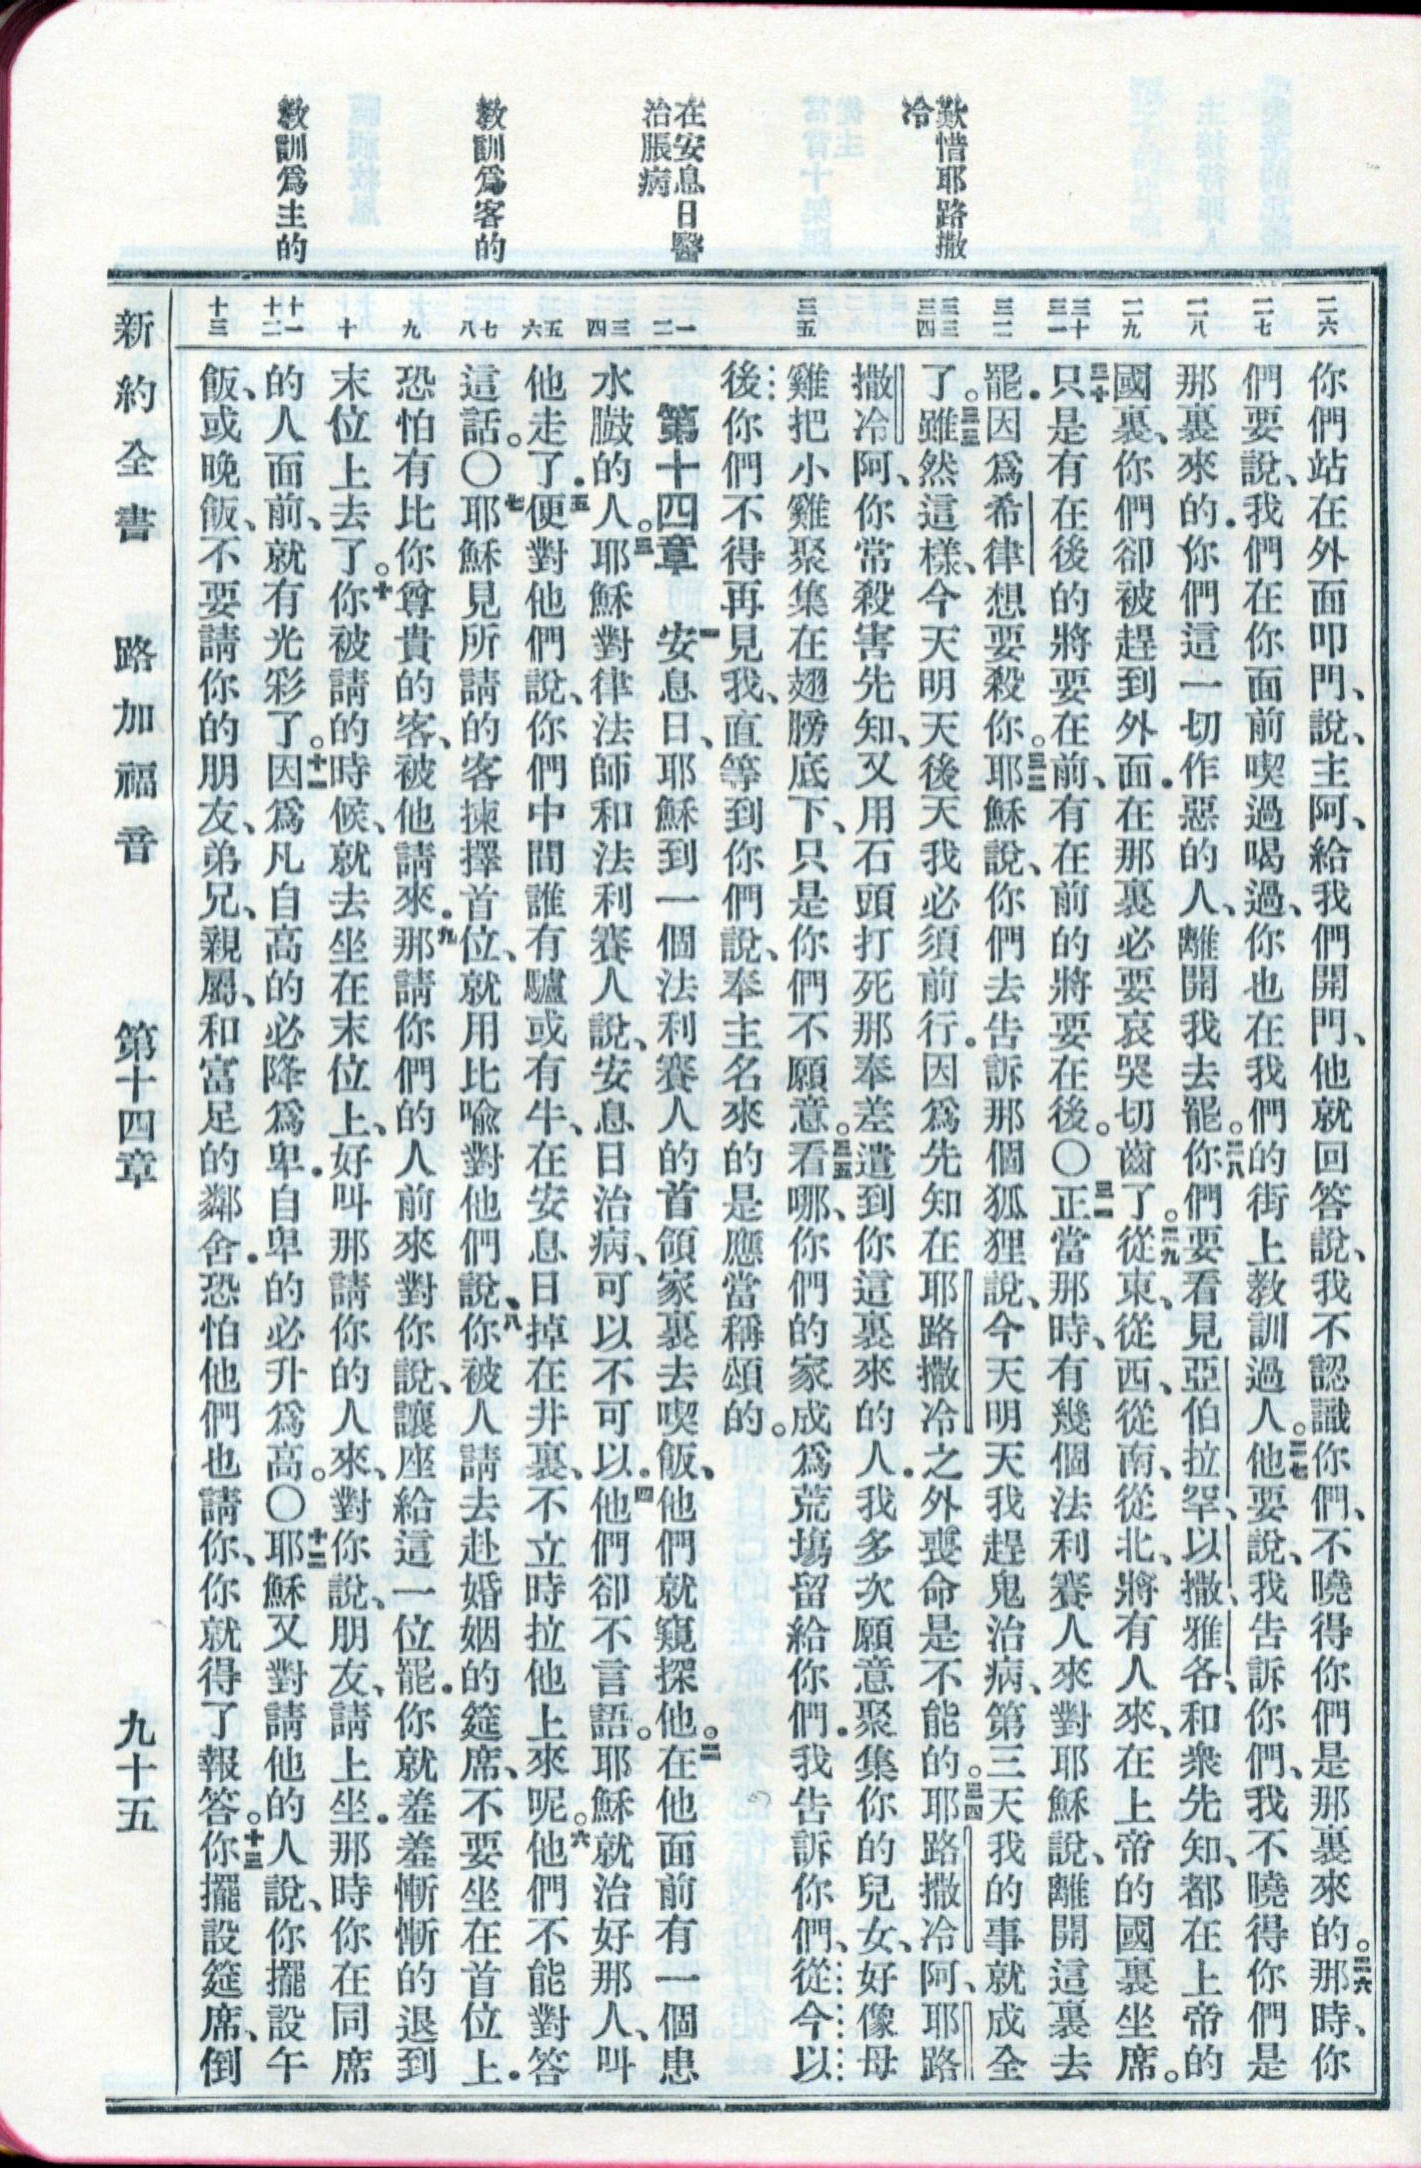 歎惜耶路撒
冷
在安息日醫
治脹病
教訓爲客的
教訓爲主的
二六
二七
二八
二九
三十
三一
三二
三三
三四
三五
一
二
三
四
五
六
七
八
九
十
十一
十二
十三
你們站在外面叩門、說、主阿、給我們開門、他就回答說、我不認識你們、不曉得你們是那裏來的。二六那時、你
們要說、我們在你面前喫過喝過、你也在我們的街上教訓過人。二七他要說、我告訴你們、我不曉得你們是
那裏來的．你們這一切作惡的人、離開我去罷。二八你們要看見亞伯拉罕、以撒、雅各、和衆先知、都在上帝的
國裏、你們卻被趕到外面．在那裏必要哀哭切齒了。二九從東、從西、從南、從北、將有人來、在上帝的國裏坐席。
三十只是有在後的將要在前、有在前的將要在後。〇三一正當那時、有幾個法利賽人來對耶穌說、離開這裏去
罷．因爲希律想要殺你。三二耶穌說、你們去告訴那個狐狸說、今天明天我趕鬼治病、第三天我的事就成全
了。三三雖然這樣、今天明天後天我必須前行．因爲先知在耶路撒冷之外喪命是不能的。三四耶路撒冷阿、耶路
撒冷阿、你常殺害先知、又用石頭打死那奉差遣到你這裏來的人．我多次願意聚集你的兒女、好像母
雞把小雞聚集在翅膀底下、只是你們不願意。三五看哪、你們的家成爲荒塲留給你們．我告訴你們、從今以
後你們不得再見我、直等到你們說、奉主名來的是應當稱頌的。
第十四章 一安息日、耶穌到一個法利賽人的首領家裏去喫飯、他們就窺探他。二在他面前有一個患
水臌的人。三耶穌對律法師和法利賽人說、安息日治病、可以不可以．四他們卻不言語。耶穌就治好那人、叫
他走了．五便對他們說、你們中間誰有驢或有牛、在安息日掉在井裏、不立時拉他上來呢。六他們不能對答
這話。〇七耶穌見所請的客揀擇首位、就用比喩對他們說、八你被人請去赴婚姻的筵席、不要坐在首位上．
恐怕有比你尊貴的客、被他請來．九那請你們的人前來對你說、讓座給這一位罷．你就羞羞慚慚的退到
末位上去了。十你被請的時候、就去坐在末位上、好叫那請你的人來、對你說、朋友、請上坐．那時你在同席
的人面前、就有光彩了。十一因爲凡自高的必降爲卑．自卑的必升爲高。〇十二耶穌又對請他的人說、你擺設午
飯、或晚飯、不要請你的朋友、弟兄、親屬、和富足的鄰舍．恐怕他們也請你、你就得了報答。十三你擺設筵席、倒
新約全書 路加福音 第十四章 九十五